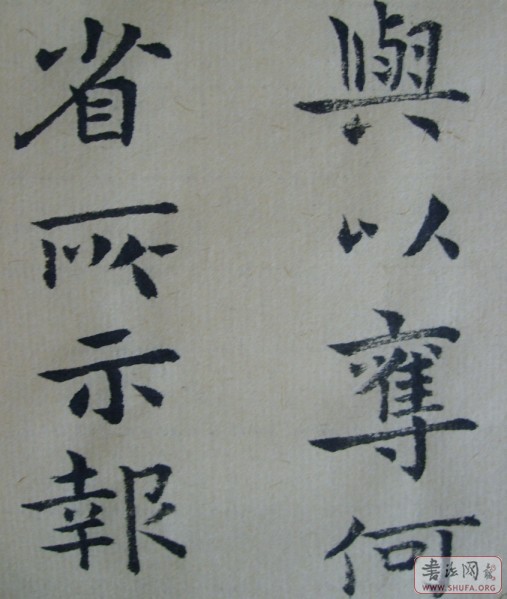 與以奪何
省所示報
書法网
WWW.SHUFA.ORG